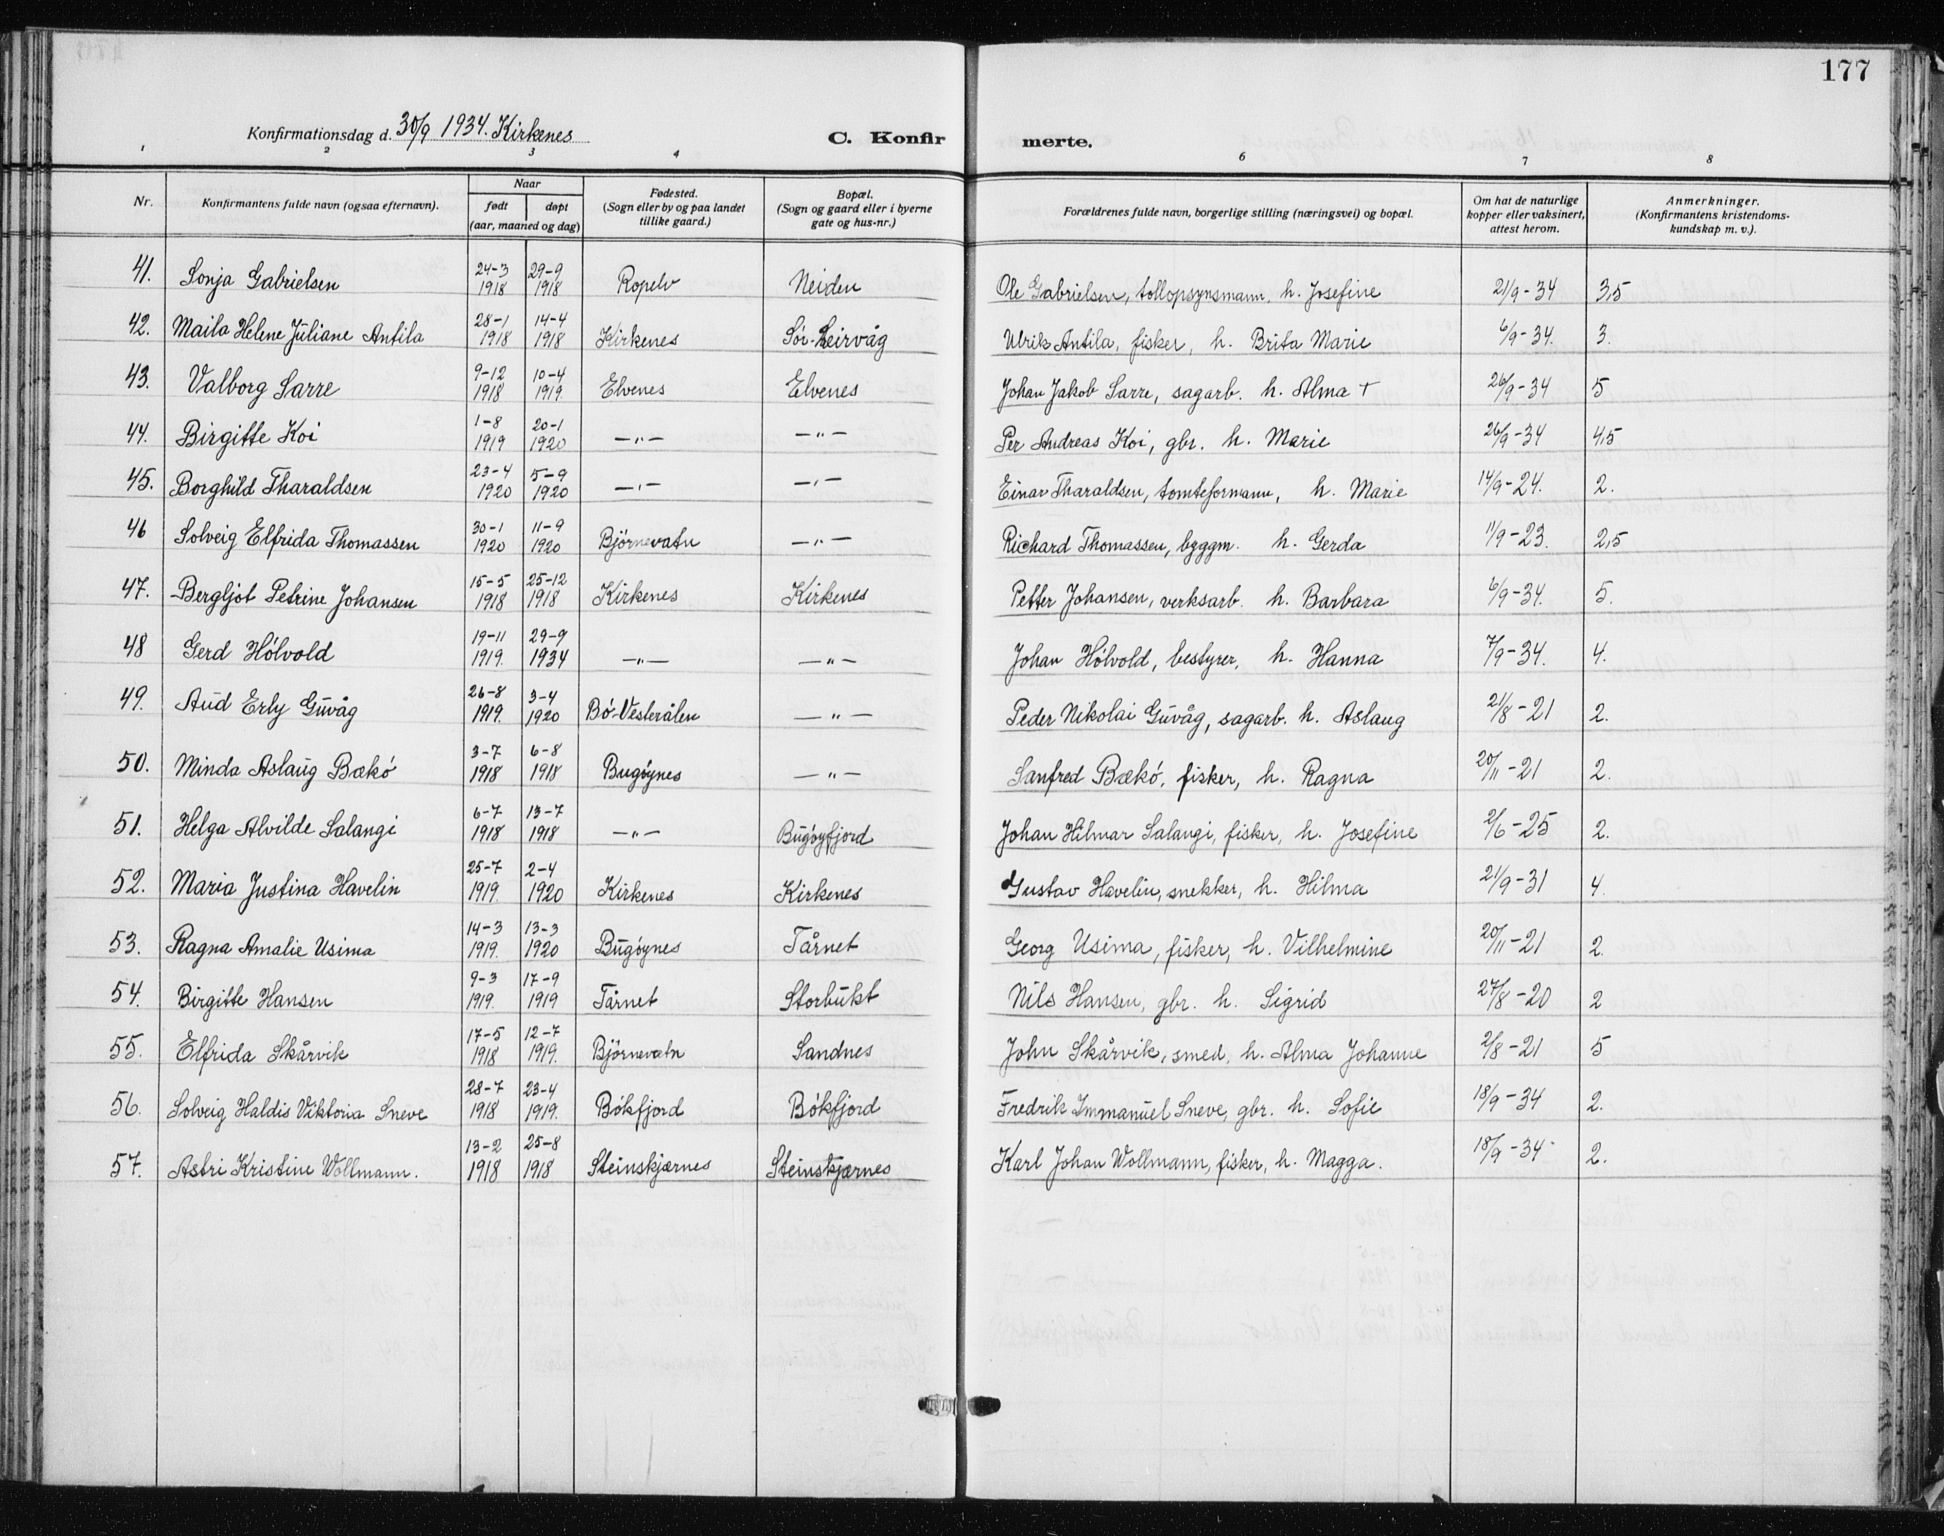 177
Konfirmationsdag d. 30/9 1934. Kirkenes
C. Konfirmerte.
1 2 3 4 6 7 8
Nr. | Konfirmantens fulde navn (ogsaa efternavn). | Naar født døpt (aar, maaned og dag) | Fødested. (Sogn eller by og paa landet tillike gaard.) | Bopæl. (Sogn og gaard eller i byerne gate og hus-nr.) | Forældrenes fulde navn, borgerlige stilling (næringsvei) og bopæl. | Om hat de naturlige kopper eller vaksinert, attest herom. | Anmerkninger. (Konfirmantens kristendoms-kundskap m. v.).
41. Sonja Gabrielsen 24-3 1918 29-9 1918 Ropelv Neiden Ole Gabrielsen, tollopsynsmann, h. Josefine 21/9-34 3,5
42. Maila Helene Juliane Antila 28-1 1918 14-4 1918 Kirkenes Sør-Leirvåg Ulrik Antila, fisker, h. Brita Marie 6/9-34. 3.
43. Valborg Sarre 9-12 1918 10-4 1919. Elvenes Elvenes Johan Jakob Sarre, sagarb. h. Alma + 26/9-34 5
44. Birgitte Koi 1-8 1919 20-1 1920 —„— —„— Per Andreas Koi, gbr. h. Marie 26/9-34 4,5
45. Borghild Tharaldsen 23-4 1920 5-9 1920 —„— —„— Einar Tharaldsen, tomteformann, h. Marie 14/9-24. 2.
46 Solveig Elfrida Thomassen 30-1 1920 11-9 1920 Bjørnevatn —„— Richard Thomassen, byggm. h. Gerda 11/9-23. 2,5
47. Bergljot Petrine Johansen 15-5 1918 25-12 1918 Kirkenes Kirkenes Petter Johansen, verksarb. h. Barbara 6/9-34. 5.
48 Gerd Hølvold 19-11 1919. 29-9 1934 —„— —„— Johan Hølvold, bestyrer, h. Hanna 7/9-34. 4.
49. Aud Erly Guvåg 26-8 1919. 3-4 1920 Bø-Vesterålen —„— Peder Nikolai Guvåg, sagarb. h. Aslaug 21/8-21 2.
50. Minda Aslaug Bækø 3-7 1918 6-8 1918 Bugøynes —„— Sanfred Bækø, fisker, h. Ragna 20/11-21 2.
51. Helga Alvilde Salangi 6-7 1918 13-7 1918 —„— Bugøyfjord Johan Hilmar Salangi, fisker, h. Josefine 2/6-25 2.
52. Maria Justina Havelin 25-7 1919. 2-4 1920 Kirkenes Kirkenes Gustav Havelin, snekker, h. Hilma 21/9-31 4.
53. Ragna Amalie Usima 14-3 1919. 13-3 1920 Bugøynes Tårnet Georg Usima, fisker, h. Vilhelmine 20/11-21 2.
54. Birgitte Hansen 9-3 1919. 17-9 1919 Tårnet Storbukt Nils Hansen, gbr. h. Sigrid 27/8-20 2
55. Elfrida Skårvik 17-5 1918 12-7 1919. Bjørnevatn Sandnes John Skårvik, smed, h. Alma Johanne 2/8-21 5
56. Solveig Haldis Viktoria Sneve 28-7 1918 23-4 1919. Bøkfjord Bøkfjord Fredrik Immanuel Sneve, gbr. h. Sofie 18/9-34 2.
57. Astri Kristine Wollmann. 13-2 1918 25-8 1918 Steinskjærnes Steinskjærnes Karl Johan Wollmann, fisker, h. Magga. 18/9-34 2.